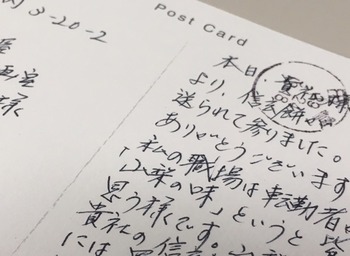 Post Card
3-20-2
画室
様
本日、貴社様
より、信玄餅が
送られて参りました。
ありがとうございます
「私の職場は転勤者
山梨の味」というと
思う様です。
貴社の
には